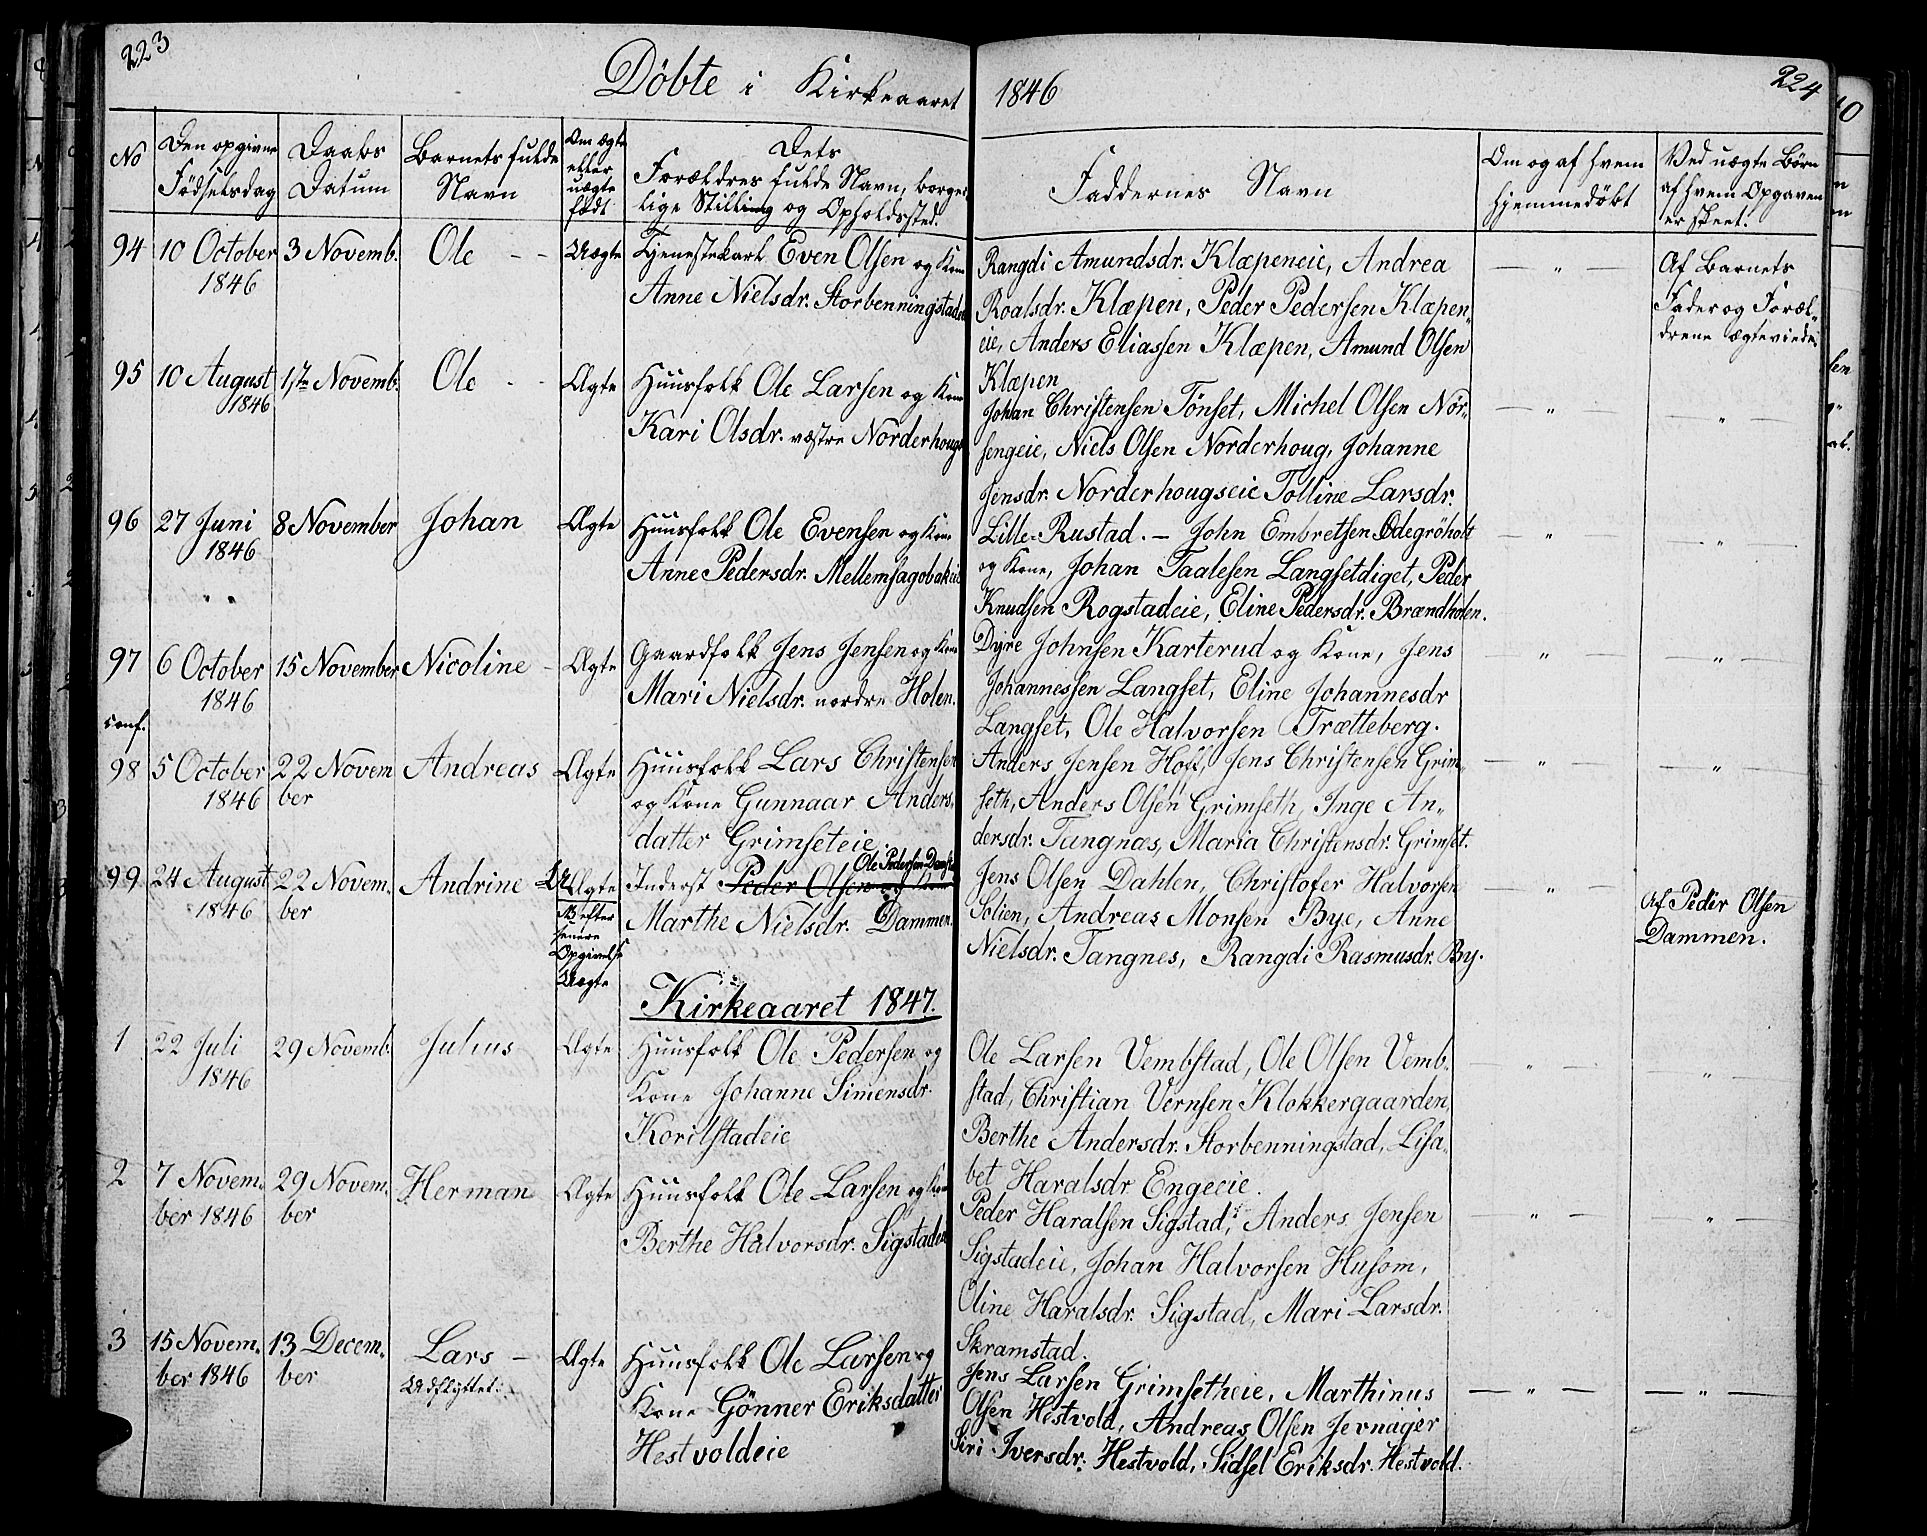 223
Döbte i Kirkeaaret 1846
224
No
Den opgivne Födselsdag
Daabs Datum
Barnets fulde Navn
Om ægte eller uægte födt
Dets Forældres fulde Navn, borgerlige Stilling og Opholdssted.
Faddernes Navn
Om og af hvem hjemmedöbt
Ved uægte Börn af hvem Opgaven er skeet.
94 10 October 3 Novemb. Ole - - Uægte Tjenestekarl Even Olsen og Kone
1846 Anne Nielsdr. Storbenningstad
Rangdi Amundsdr. Klæpeneie, Andrea
Roalsdr. Klæpen, Peder Pedersen Klæpen„
eie, Anders Eliassen Klæpen, Amund Olsen
Klæpen
— „ —
Af Barnets
Fader og Foræl„
drene ægteviede.
95 10 August 1ste Novemb. Ole - - Ægte Huusfolk Ole Larsen og Kone
1846 Kari Olsdr. vestre Norderhoug
Johan Christensen Tönset, Michel Olsen Nör„
sengeie, Niels Olsen Norderhoug, Johanne
Jensdr. Norderhougseie Tolline Larsdr.
Lille-Rustad. —
— „ — „ —
96 27 Juni 8 November Johan Ægte Huusfolk Ole Evensen og Kone
1846 Anne Pedersdr. Mellemsagobakeie
„ „
John Embretsen Ödegröholt
og Kone, Johan Taalesen Langsetdiget, Peder
Knudsen Rogstadeie, Eline Pedersdr. Brændholen.
— „ — — „
97 6 October 15 November Nicoline - Ægte Gaardfolk Jens Jensen og Kone
1846 Mari Nielsdr. nordre Holen.
conf.
Dyre Johnsen Karterud og Kone, Jens
Johannessen Langset, Eline Johannesdr
Langset, Ole Halvorsen Trætteberg.
— „ — — „ —
98 5 October 22 Novem Andreas Ægte Huusfolk Lars Christensen
1846 ber og Kone Gunnaar Anders„
datter Grimseteie.
Anders Jensen Hoff, Jens Christensen Grim„
seth, Anders Olsen Grimseth, Inge An„
dersdr. Tangnæs, Maria Christensdr. Grimset.
— „ — — „ —
99 24 August 22 Novem„ Andrine UÆgte Inderst Peder Olsen og Kone
Ole Pedersen Dam
1846 ber Marthe Nielsdr. Dammen.
NB efter
senere
Opgivelse
Uægte
Jens Olsen Dahlen, Christofer Halvorsen
Solien, Andreas Monsen Bye, Anne
Nielsdr. Tangnes, Rangdi Rasmusdr. By.
— „ —
Af Peder Olsen
Dammen.
Kirkeaaret 1847.
1 22 Juli 29 Novemb. Julius Ægte Huusfolk Ole Pedersen og
1846 Kone Johanne Simensdr.
Korilstadeie
Ole Larsen Vembstad, Ole Olsen Vemb„
stad, Christian Vernsen Klokkergaarden,
Berthe Andersdr. Storbenningstad, Lisa„
bet Haralsdr Engeeie.
— „ — — „ —
2 7 Novem„ 29 Novem„ Herman Ægte Huusfolk Ole Larsen og Kone
ber 1846 ber Berthe Halvorsdr. Sigstaden
Peder Haralsen Sigstad, Anders Jensen
Sigstadeie, Johan Halvorsen Husom,
Oline Haralsdr. Sigstad, Mari Larsdr.
Skramstad.
— „ — — „ —
3 15 Novem„ 13 Decem„ Lars — Ægte Huusfolk Ole Larsen og
ber 1846 ber Udflyttet. Kone Gönner Eriksdatter
Hestvoldeie
Jens Larsen Grimsetheie, Marthinus
Olsen Hestvold, Andreas Olsen Jevnager
Siri Iversdr. Hestvold, Sidsel Eriksdr. Hestvold.
— „ — — „ —